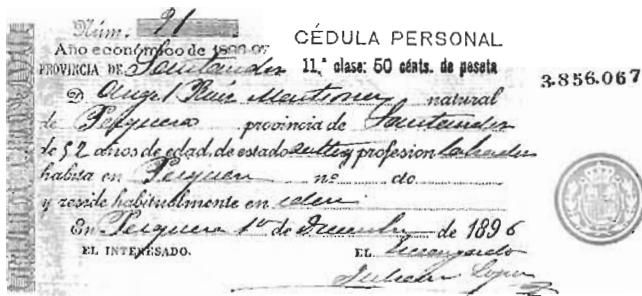 Núm. 91
CÉDULA PERSONAL
Año económico de 1896-97
PROVINCIA DE Santander 11.ª clase: 50 cénts. de peseta
3.856.067
D Angel Ruiz natural
de Pesquera provincia de Santander
de 52 años de edad, de estado soltero profesion labrador
habita en Pesquera nº de
y reside habitualmente en idem
En Pesquera 1º de Diciembre de 1896
EL INTERESADO. EL Encargado
Julian Lopez